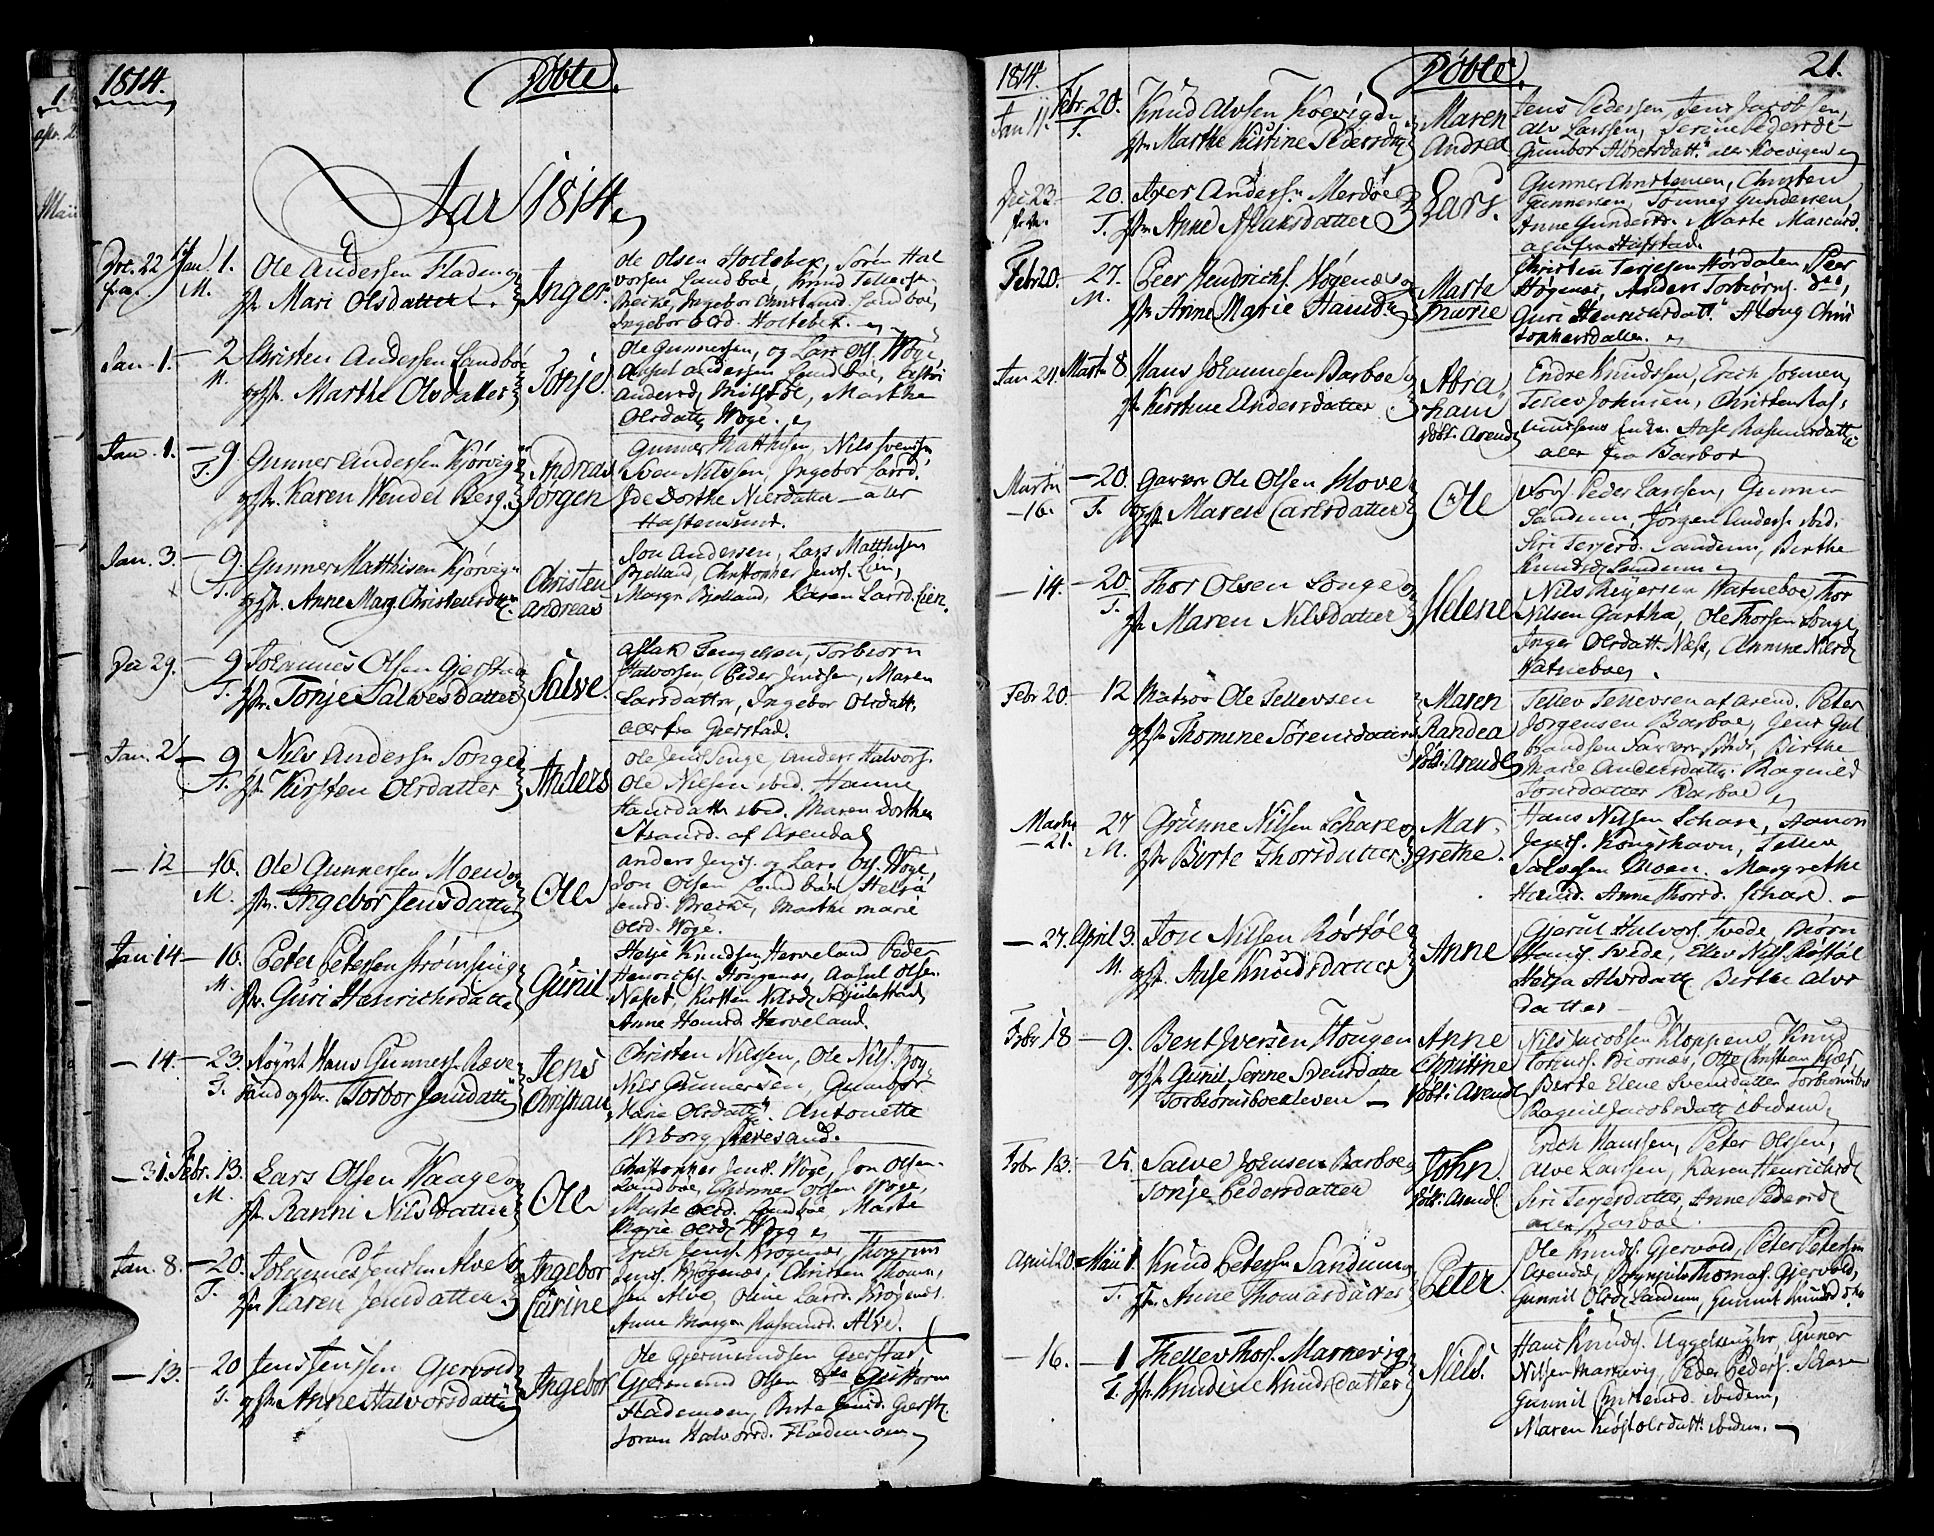 1814.
Døbte.
Aar 1814.
Dec. 22 Jan 1. M. Ole Andersen Fladen og Hst. Mari Olsdatter. Inger.
Ole Olsen Holtebek, Søren Hal
vorsen Landboe, Knud Tellefsen
Ingebor Holtebek.
Jan. 1. 2 M. Christen Andersen Landboe
og Hst. Marthe Olsdatter Tonje.
Ole Gunnersen, og Lars Ols. Woge,
Aasul Andersen Landboe,
Marthe
Olsdattr Woge.
Jan. 1. 9 T. Gunner Andersen Kjørvig
og Hst. Karen Wendel Berg. Andreas Jørgen
Gunner Matthisen, Nils Svensen
Sven Nilssen, Ingebor Larsd.
Dorthe Nilsdatter alle
Hastensund.
Jan. 3. 9. T. Gunner Matthisen Kjørvig
og Hst. Anne Marg Christensdatter Christen Andreas
Jon Andersen, Lars Matthisen
Bjelland, Christopher Jens. Lien,
Margr. Bjelland, Karen Larsd. Lien.
De 29. 9 T. Johannes Olsen Gjerstad
Hst. Tonje Salvesdatter Salve.
Aslak Tengelsen, Torbiørn
Halvorsen, Peder Jensen, Maren
Larsdatter, Ingebor Olsdatt.
alle fra Gjerstad.
Jan. 2 9 T. Nils Andersen Songe
Hst. Kirsten Olsdatter Anders
Ole Jens. Songe, Anders Halvors.
Ole Nilsen ibid. Hanne
Hansdatter ibid. Maren Dorthea
af Arendal
12 16. M. Ole Gunnersen Moen og
Hst. Ingebor Jensdatter Ole
Anders Jens. og Lars Ols. Woge,
Jon Olsen Landboe, Helje
Jensd. Brekke, Marthe Marie
Olsd. Woge.
Jan 14 16. M. Peter Petersen Strømsing
Hst. Guri Henrichsdatter Gunil
Helje Knudsen Herveland, Peder
Henrichs. Hougenes, Aasul Olsen
Neset, Kirsten Nilsd.
Anne Hansd Herveland.
14. 23. T. Hans Gunners. Reve
sand og Hst. Torbor Jensdatter Jens Christian
Christen Nilssen, Ole Nils. Bog,
Nils Gunnersen, Gunbor
Marie Olsdattr. Antonette
Wiborg Revesand.
31. Febr. 13. M. Lars Olsen Waage og
Hst. Ranni Nilsdatter Ole
Christopher Jens. Woge, Jon Olsen
Landboe, Gunner Olsen Woge,
Marte Olsd. Landboe, Marte
Marie Olsd. Woge
Jan. 8. 20. T. Johannes Jensen Alve og
Hst. Karen Jensdatter. Ingebor Carine
Erich Jens. Krogenes, Thorgrim
Jens. Krogenes, Christen Thom
sen Alve, Oline Larsd. Krogenes.
Anne Margr Alve.
13. 20 T. Jens Jenssen Gjervold
og Hst. Anne Halvorsdatter Ingebor
Ole Gjermundsen Gjerstad
Gjermund Olsen Guttorm
Flademoen, Birte Jensd. Gjerst.
Joran Halvorsd. Flademoen
1814.
Døbte.
21.
Jan 11. Febr. 20. T. Knud Alvsen Koevigen
Hst. Marthe Kistine Pedersdtr Maren Andrea
Jens Pedersen, Jens Jacobsen,
Alv Larssen, Serine Pedersd.
Gunbor Albretsdatt. alle Koevigen
Dec 23. 20. T. Iver Andersen Merdøe
Hst. Anne Aslaksdatter Lars.
Gunner Christensen, Christen
Gunnersen, Tønnes Gundersen,
Anne Gundersd. Marte Marcusd.
alle fra Hafstad.
Febr 20. 27. M. Peer Hendrichs. Høgenæs
Hst. Anne Marie Hansd. Marte Marie
Christen Terjesen Hørdalen, Peer
Høgenæs, Anders Torbiørns. do,
Guri Henrichsdatt. Aslaug Chris
tophersdatter.
Jan 24. Marti 8. Hans Johannesen Barboe
Hst. Kirstine Andersdatter. Abraham døbt i Arendl
Endre Knudssen, Erich Johnsen,
Tellev Johnsen, Christen Ras
mussens Enke, Aase Rasmusdatter
alle fra Barboe
Martii 16. 20. T. Garver Ole Olsen Slove
og Hst. Maren Carlsdatter Ole
Peder Larssen, Gunner
Sandum, Jørgen Anders. ibid.
Siri Terjesd. Sandum, Birthe
Knudsd Sandum
14. 20. T. Thor Olsen Songe
Hst. Maren Nilsdatter Helene
Nils Meyersen Watneboe, Thor
Nilsen Gartha, Ole Thorsen Songe
Inger Olsdatt. Næss, Annine Nilsd
Watneboe.
Febr 20. 12 Matros Ole Tellevsen
og Hst. Thomine Sørensdatter Maren Randea døbt i Arendl
Tellev Tellevsen af Arend. Peter
Jørgensen Barboe, Jens Gul
brandsen Farver ibid. Birthe
Marie Andersdattr. Ragnild
Tonisdatter Barboe
Martii 21. 27 M. Grunne Nilsen Schare og
Hst. Birte Thorsdatter Margrethe.
Hans Nilsen Schare, Hanon
Jens. Kongshavn, Tellev
Salvesen Moen. Margrethe
Hansd. Anne Thorsd. Schare.
27. April 9. M. Jon Nilsen Røstøl
og Hst. Anse Knudsdatter Anne
Gjerul Halvors. Svede, Biørn
Hans. Svede, Ellev Nils. Røstøl
Helja Alvsdattr Birthe Alvs
datter
Febr 18 9. Bent Iversen Hougen
og Hst. Gunil Serine Svendsdatter
Torbiørnsboe Anne Christine døbt i Arendl
Nils Jacobsen Kloppene, Knud
Biørnæs, Otte Christian Kjær,
Birte Elene Svensdatter Torbiørnsboe
Ragnil Jacobsdattr ibidem
Febr 13. 21. Salve Johnsen Barboe
Tonje Pedersdatter John. døbt i Arendl
Erich Hanssen, Peter Olssen,
Alve Larssen, Karen Henrichsd
Siri Terjesdatter, Anne Pedersd
alle Barboe.
April 20. Maii 1. T. Knud Petersen Sandum
Hst. Anne Thomasdatter Peter.
Ole Knuds. Gjervold, Peter Petersen
Arendal, Thomas. Gjervold,
Gunnil Olsd Sandum, Gunnil Knudsd
16. 1 T. Thellev Thors. Marnevig
Hst. Knudine Knudsdatter Niels.
Hans Knuds. Guner
Nilsen Marnevig, Peder Peders. Schare
Gunnil ibidem,
Maren Kiøstolsdatt. ibidem.